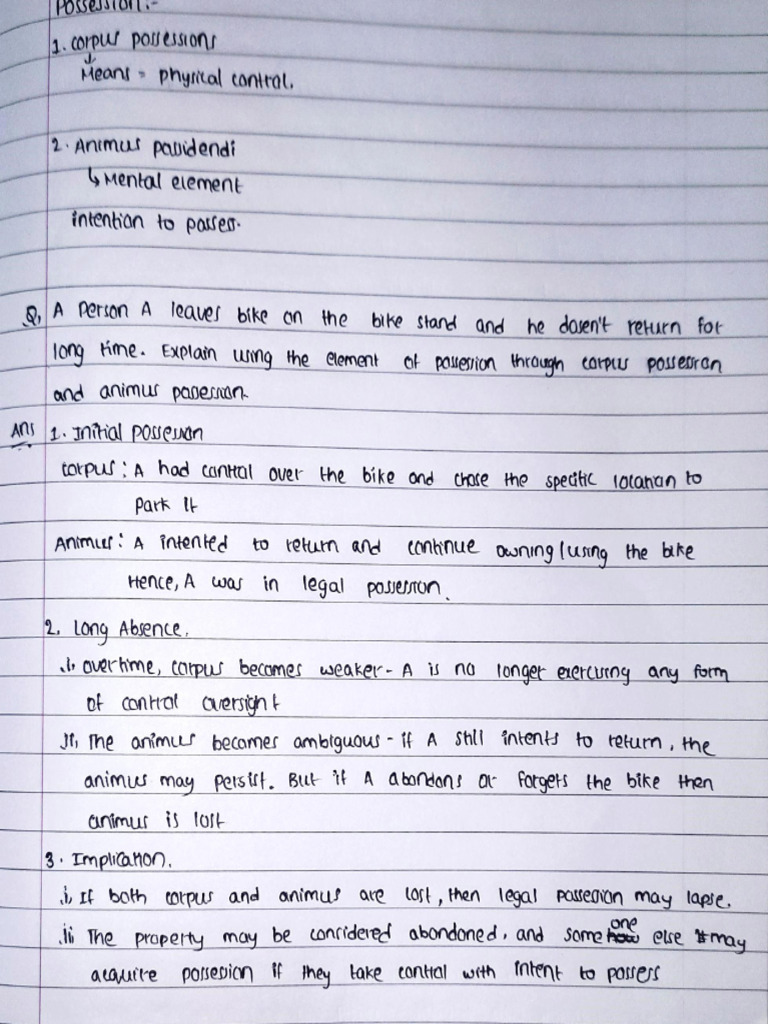 Possession:-
1. corpus possessions
↓
Means = physical control.
2. Animus possidendi
↳ Mental element
intention to possess.
Q, A person A leaves bike on the bike stand and he doesn't return for
long time. Explain using the element of possession through corpus possession
and animus possession.
Ans 1. Initial possession
corpus : A had control over the bike and chose the specific location to
park it
Animus : A intented to return and continue owning/using the bike
Hence, A was in legal possession.
2. Long Absence.
i, overtime, corpus becomes weaker - A is no longer exercising any form
of control oversight
ii, The animus becomes ambiguous - if A still intents to return, the
animus may persist. But if A abandons or forgets the bike then
animus is lost
3. Implication.
i, If both corpus and animus are lost, then legal possession may lapse.
ii The property may be considered abandoned, and some one else may
acquire possesion if they take control with intent to possess